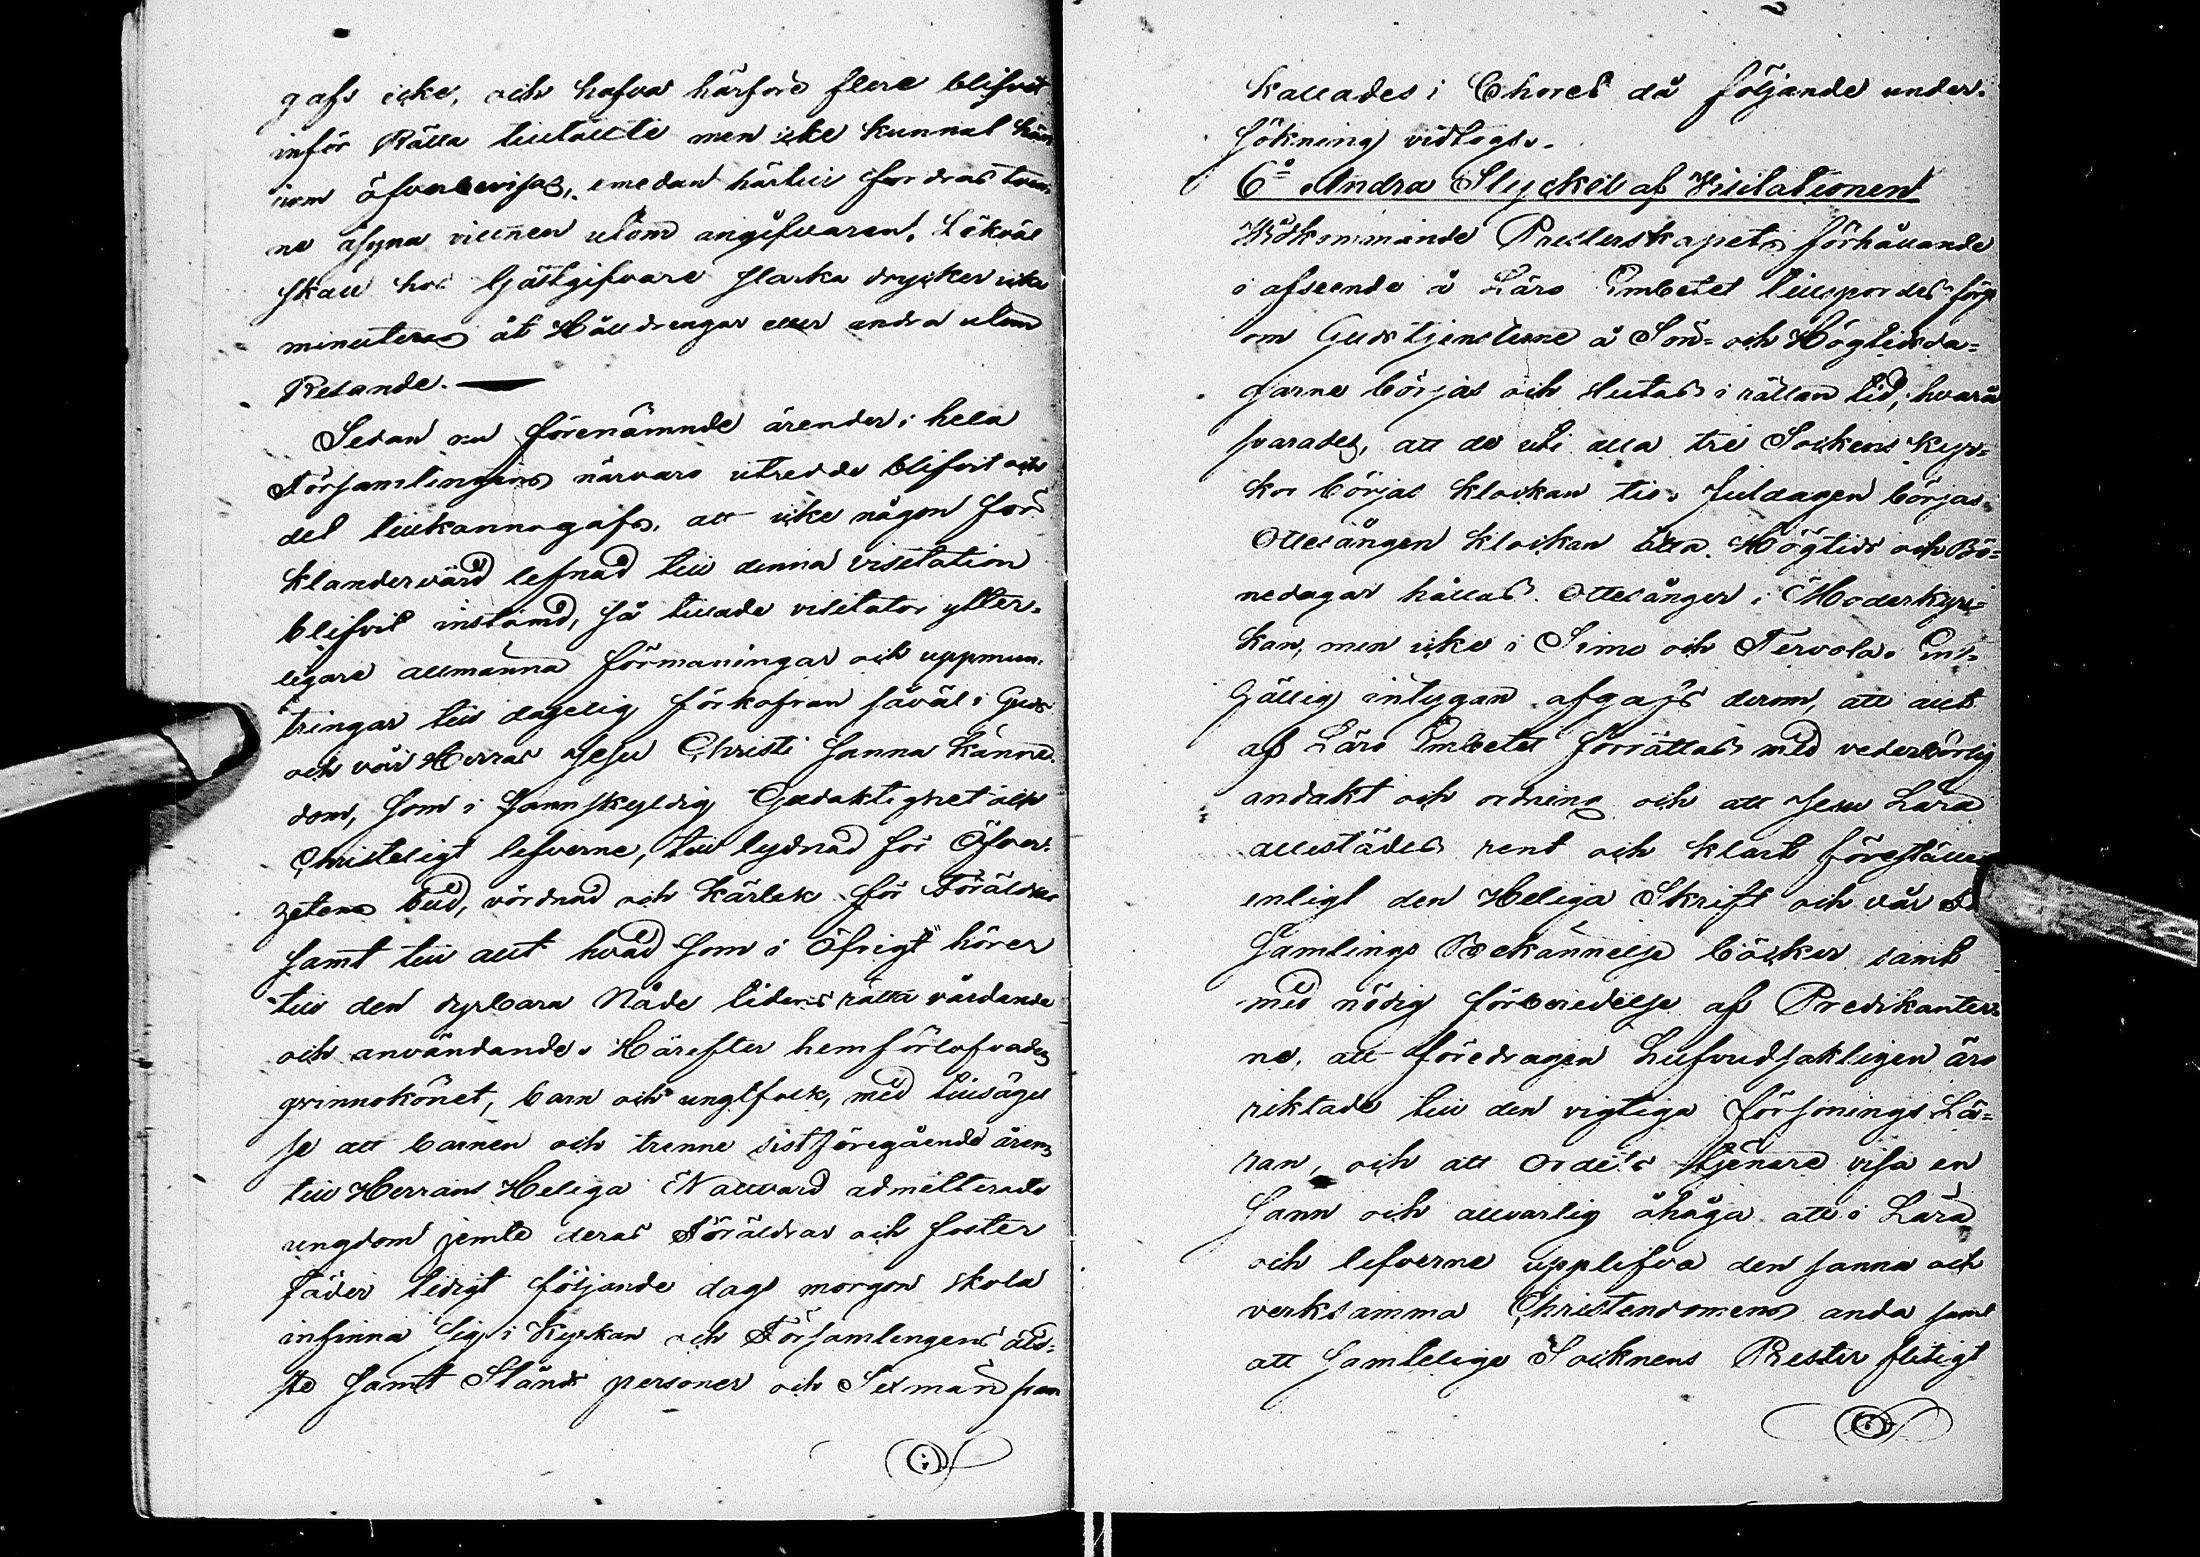 gafs icke, och hafva härföre flere blifvit
inför Rätta tilltalte men icke kunnat här
inom öfverbevisas, emedan härtill fordras tven
ne åsyna vittnen utom angifvaren. Likväl
skall hos Gästgifvare starka drycker icke
minuteras åt Hålldrengar eller andra utom
Resande.
Sedan nu förenämnde ärender i hela
Församlingens närvaro utredde blifvit och
det tillkännagafs, att icke någon för
klandervärd lefnad till denna visitation
blifvit instämd, så tillade visitator ytter-
ligare allmänna förmaningar och uppmun-
tringar till dagelig förkofran såväl i Guds
och vår Herras Jesu Christi sanna känne-
dom, som i sannskyldig Gudaktighet och
Christeligt lefverne, till lydnad för Öfver-
hetens bud, vördnad och kärlek för Föräldrar
samt till allt hvad som i Öfrigt hörer
till den dyrbara Nåde tidens rätta vårdande
och användande. Härefter hemförlofvades
qvinnokönet, barn och ungtfolk, med tillsägel
se att barnen och trenne sistföregående åren
till Herrans Heliga Nattvard admitterade
ungdom jemte deras Föräldrar och foster
fäder tidigt följande dags morgon skola
infinna sig i Kyrkan och Församlingens älds-
te samt Stånds personer och Sexmän fram
kallades i Choret då följande under-
sökning vidtogs.
6o Andra Stycket af Visitationen
Vidkommande Presterskapets förhållande
i afseende å Läro Embetet tillspordes först
om Gudstjensterne å Sön- och Högtidsda-
garne börjas och slutas i rättan tid, hvarå
svarades, att de uti alla tre Sockens Kyr-
kor börjas klockan tio. Juldagen börjas
Ottesången klockan åtta. Högtids och Bö-
nedagar hållas Ottesånger i Moderkyr-
kan, men icke i Simo och Tervola. Enh-
hällig intygan afgafs derom, att allt
af Läro Embetet förrättas med vederbörlig
andakt och ordning och att Jesu Lära
allestädes rent och klart föreställes
enligt den Heliga Skrift och vår För
samlings Bekännelse böcker samt
med nödig förberedelse af Predikanter-
ne, att föredragen hufvudsakligen äro
riktade till den vigtiga försonings Lä-
ran, och att Ordets tjenare visa en
sann och allvarlig åhåga att i Lära
och lefverne upplifva den sanna och
verksamma Christendomens anda samt
att samtelige Socknens Prester flitigt